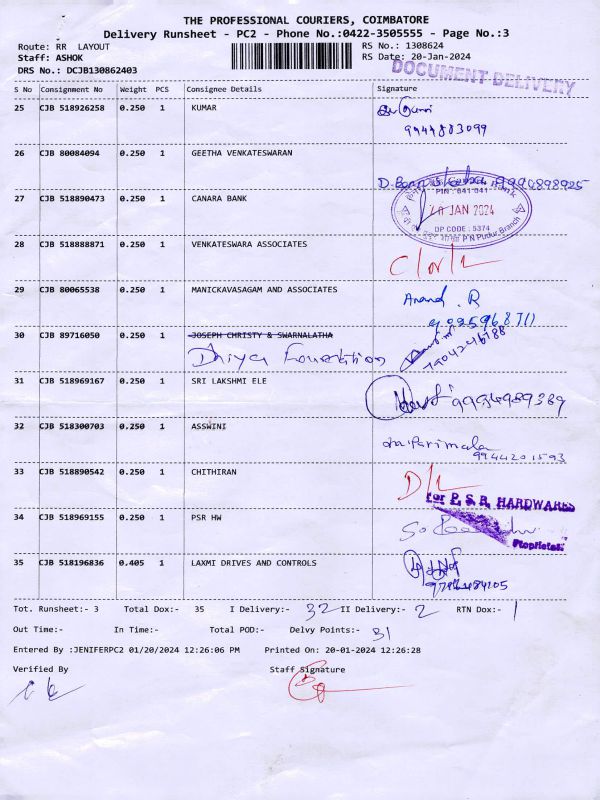 THE PROFESSIONAL COURIERS, COIMBATORE
Delivery Runsheet - PC2 - Phone No.:0422-3505555 - Page No.:3
Route: RR LAYOUT
RS No.: 1308624
Staff: ASHOK
RS Date: 20-Jan-2024
DRS No.: DCJB130862403
DOCUMENT DELIVERY
S No Consignment No Weight PCS Consignee Details Signature
25 CJB 518926258 0.250 1 KUMAR
9944883099
26 CJB 80084094 0.250 1 GEETHA VENKATESWARAN
27 CJB 518890473 0.250 1 CANARA BANK
PIN : 641 041
20 JAN 2024
DP CODE : 5374
P N Pudur Branch
28 CJB 518888871 0.250 1 VENKATESWARA ASSOCIATES
29 CJB 80065538 0.250 1 MANICKAVASAGAM AND ASSOCIATES Anand . R
30 CJB 89716050 0.250 1 JOSEPH CHRISTY & SWARNALATHA
Dhiya Foundation
7904246188
31 CJB 518969167 0.250 1 SRI LAKSHMI ELE 9994989389
32 CJB 518300703 0.250 1 ASSWINI
9944201593
33 CJB 518890542 0.250 1 CHITHIRAN D/L
For P. S. R. HARDWARES
34 CJB 518969155 0.250 1 PSR HW
Proprietor
35 CJB 518196836 0.405 1 LAXMI DRIVES AND CONTROLS
Tot. Runsheet:- 3 Total Dox:- 35 I Delivery:- 32 II Delivery:- 2 RTN Dox:- 1
Out Time:- In Time:- Total POD:- Delvy Points:- 31
Entered By :JENIFERPC2 01/20/2024 12:26:06 PM Printed On: 20-01-2024 12:26:28
Verified By Staff Signature